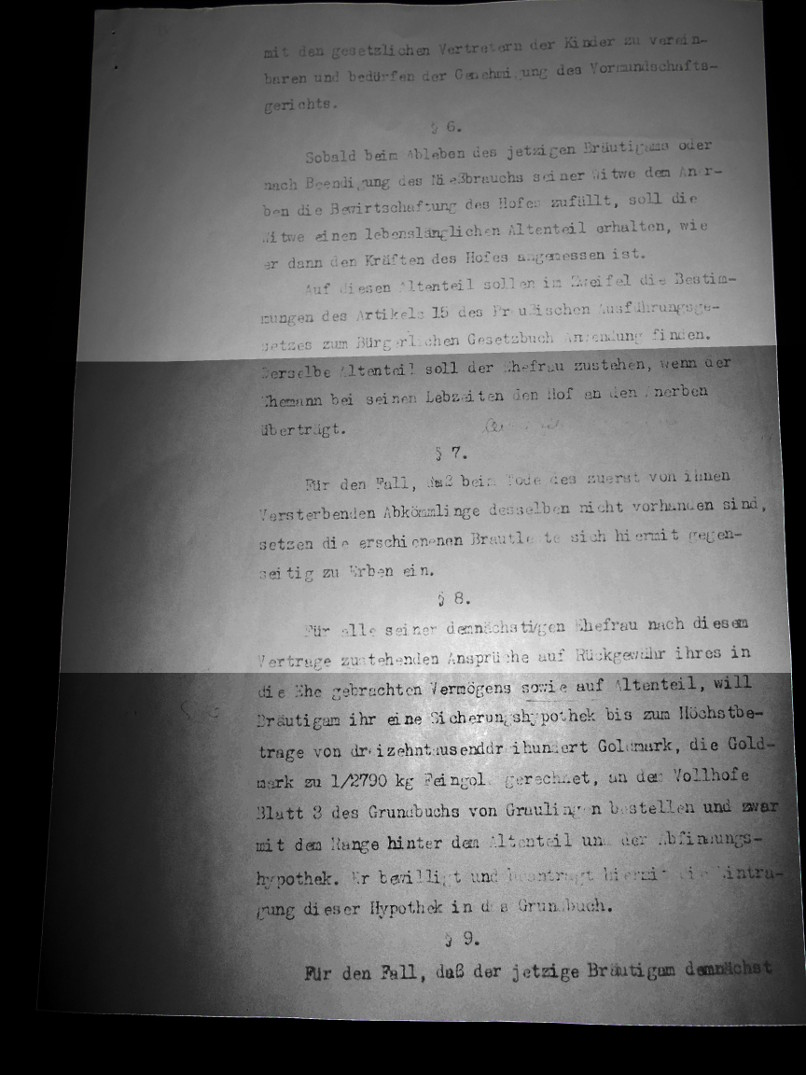 mit den gesetzlichen Vertretern der Kinder zu verein-
baren und bedürfen der Genehmigung des Vormundschafts-
gerichts.
§ 6.
Sobald beim Ableben des jetzigen Bräutigams oder
nach Beendigung des Nießbrauchs seiner Witwe dem Aner-
ben die Bewirtschaftung des Hofes zufällt, soll die
Witwe einen lebenslänglichen Altenteil erhalten, wie
er dann den Kräften des Hofes angemessen ist.
Auf diesen Altenteil sollen im Zweifel die Bestim-
mungen des Artikels 15 des Preußischen Ausführungsge-
setzes zum Bürgerlichen Gesetzbuch Anwendung finden.
Derselbe Altenteil soll der Ehefrau zustehen, wenn der
Ehemann bei seinen Lebzeiten den Hof an den Anerben
überträgt.
§ 7.
Für den Fall, daß beim Tode des zuerst von ihnen
Versterbenden Abkömmlinge desselben nicht vorhanden sind,
setzen die erschienenen Brautleute sich hiermit gegen-
seitig zu Erben ein.
§ 8.
Für alle seiner demnächstigen Ehefrau nach diesem
Vertrage zustehenden Ansprüche auf Rückgewähr ihres in
die Ehe gebrachten Vermögens sowie auf Altenteil, will
Bräutigam ihr eine Sicherungshypothek bis zum Höchstbe-
trage von dreizehntausenddreihundert Goldmark, die Gold-
mark zu 1/2790 kg Feingold gerechnet, an dem Vollhofe
Blatt 3 des Grundbuchs von Graulingen bestellen und zwar
mit dem Range hinter dem Altenteil und der Abfindungs-
hypothek. Er bewilligt und beantragt hiermit die Eintra-
gung dieser Hypothek in das Grundbuch.
§ 9.
Für den Fall, daß der jetzige Bräutigam demnächst